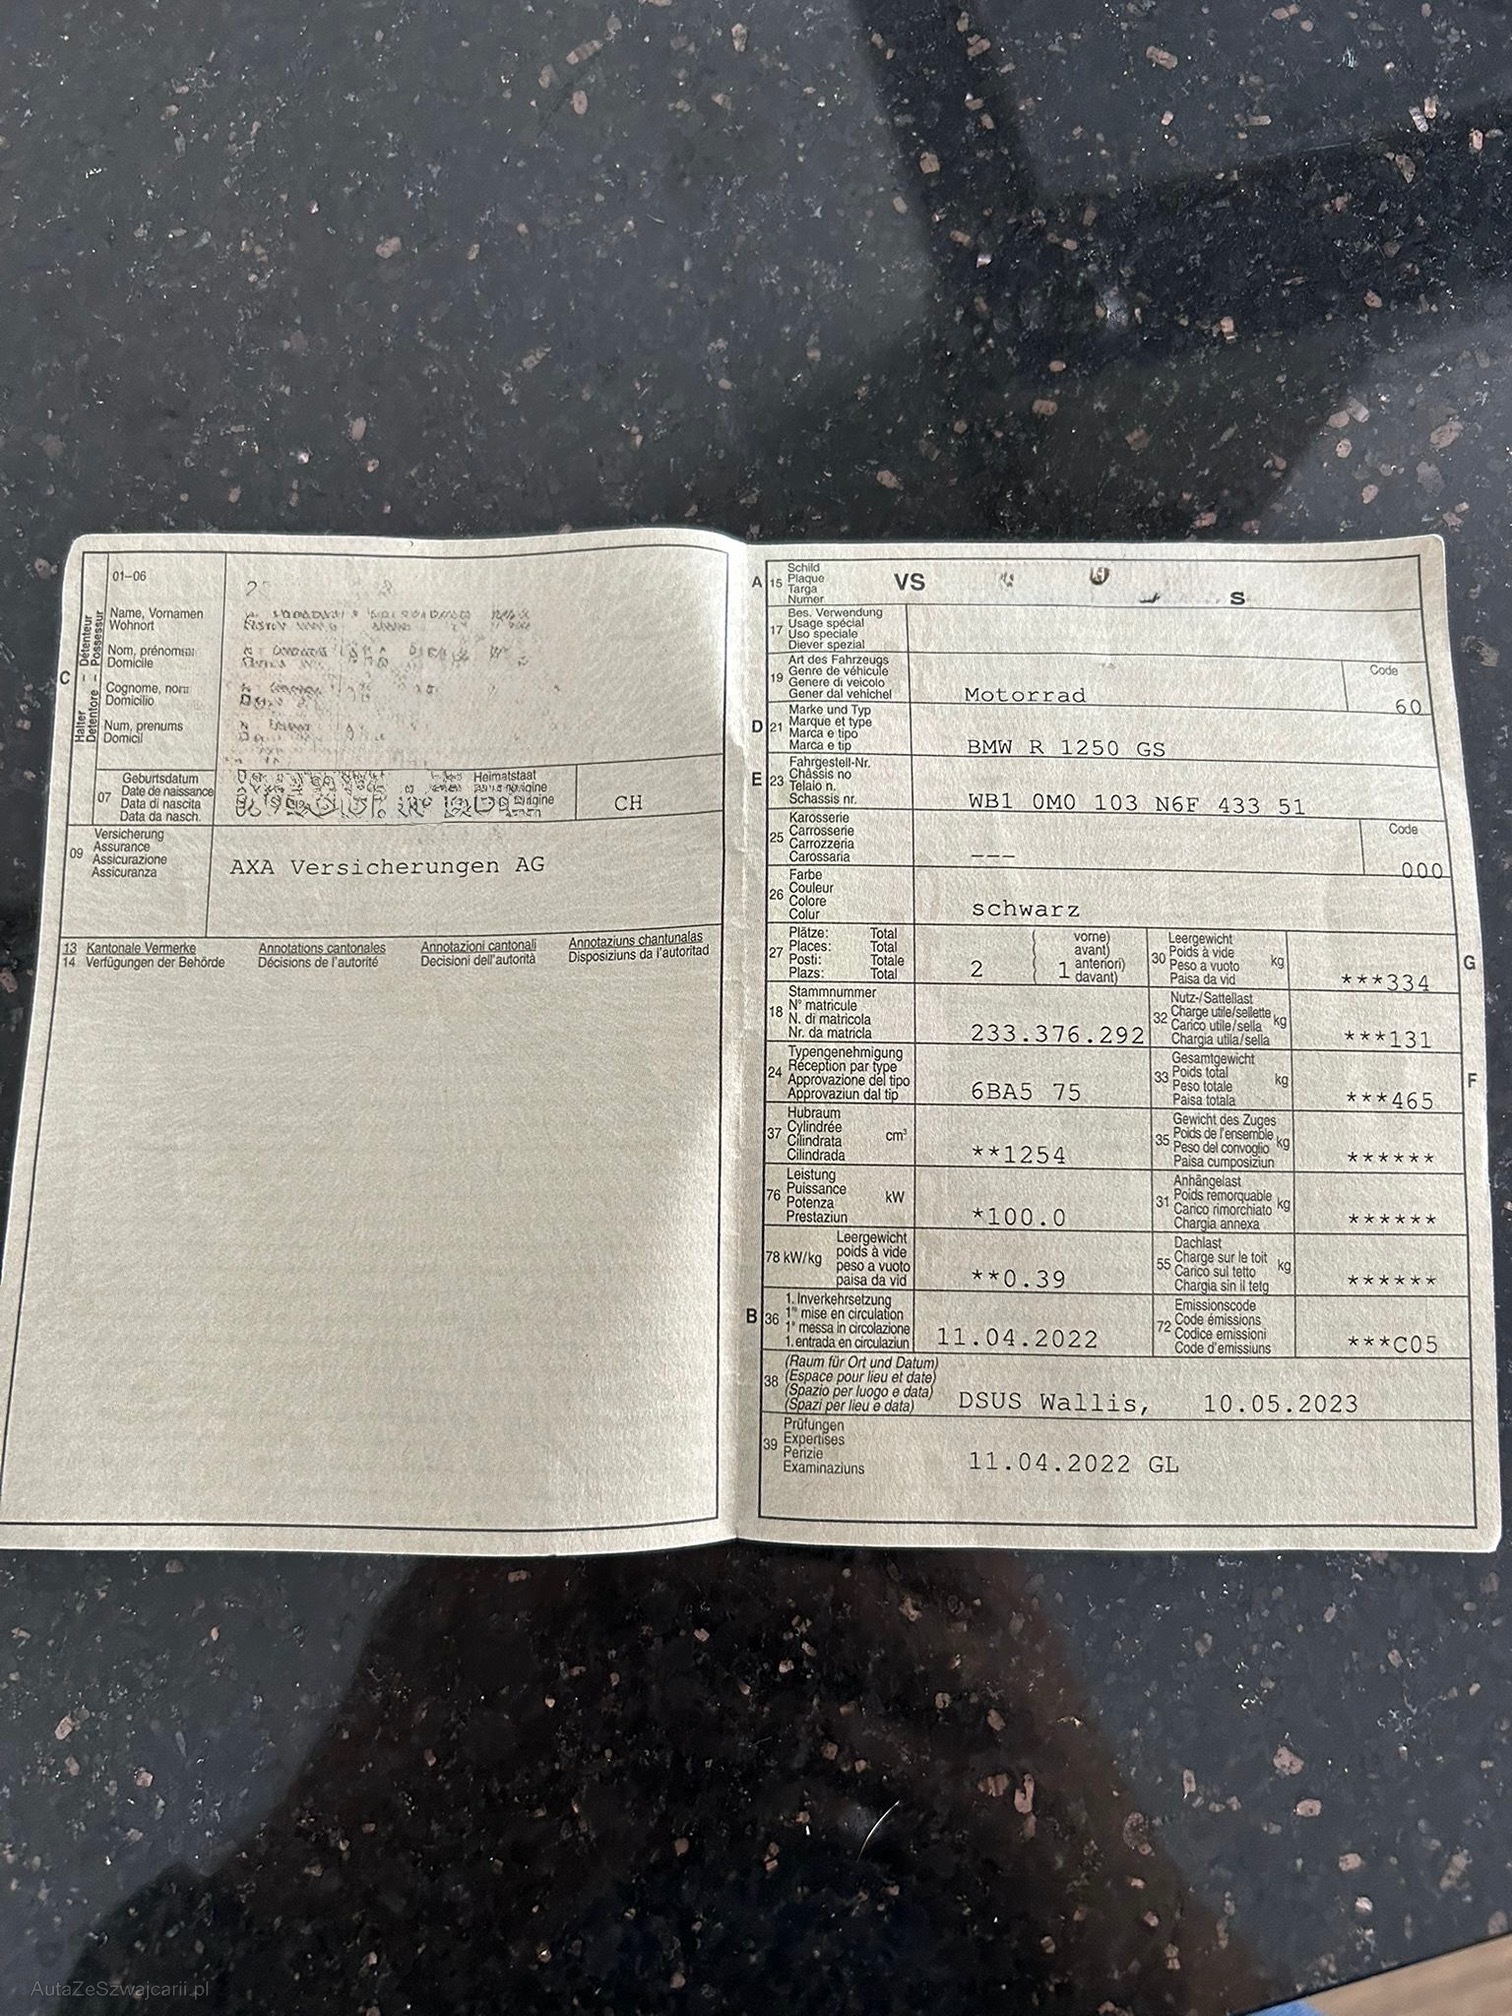 01–06
Halter – Détenteur
Detentore – Possessur
C
Name, Vornamen
Wohnort
Nom, prénoms
Domicile
Cognome, nomi
Domicilio
Num, prenums
Domicil
07
Geburtsdatum
Date de naissance
Data di nascita
Data da nasch.
Heimatstaat
CH
09
Versicherung
Assurance
Assicurazione
Assicuranza
AXA Versicherungen AG
13 Kantonale Vermerke Annotations cantonales Annotazioni cantonali Annotaziuns chantunalas
14 Verfügungen der Behörde Décisions de l'autorité Decisioni dell'autorità Disposiziuns da l'autoritad
A 15
Schild
Plaque
Targa
Numer
VS S
17
Bes. Verwendung
Usage spécial
Uso speciale
Diever spezial
19
Art des Fahrzeugs
Genre de véhicule
Genere di veicolo
Gener dal vehichel
Motorrad
Code
60
D 21
Marke und Typ
Marque et type
Marca e tipo
Marca e tip
BMW R 1250 GS
E 23
Fahrgestell-Nr.
Châssis no
Telaio n.
Schassis nr.
WB1 0M0 103 N6F 433 51
25
Karosserie
Carrosserie
Carrozzeria
Carossaria
---
Code
000
26
Farbe
Couleur
Colore
Colur
schwarz
27
Plätze: Total
Places: Total
Posti: Totale
Plazs: Total
2
1
vorne)
avant)
anteriori)
davant)
30
Leergewicht
Poids à vide
Peso a vuoto
Paisa da vid
kg
***334
G
18
Stammnummer
N° matricule
N. di matricola
Nr. da matricla
233.376.292
32
Nutz-/Sattellast
Charge utile/sellette
Carico utile/sella
Chargia utila/sella
kg
***131
24
Typengenehmigung
Réception par type
Approvazione del tipo
Approvaziun dal tip
6BA5 75
33
Gesamtgewicht
Poids total
Peso totale
Paisa totala
kg
***465
F
37
Hubraum
Cylindrée
Cilindrata
Cilindrada
cm³
**1254
35
Gewicht des Zuges
Poids de l'ensemble
Peso del convoglio
Paisa cumposiziun
kg
******
76
Leistung
Puissance
Potenza
Prestaziun
kW
*100.0
31
Anhängelast
Poids remorquable
Carico rimorchiato
Chargia annexa
kg
******
78 kW/kg
Leergewicht
poids à vide
peso a vuoto
paisa da vid
**0.39
55
Dachlast
Charge sur le toit
Carico sul tetto
Chargia sin il tetg
kg
******
B 36
1. Inverkehrsetzung
1re mise en circulation
1a messa in circolazione
1. entrada en circulaziun
11.04.2022
72
Emissionscode
Code émissions
Codice emissioni
Code d'emissiuns
***C05
38
(Raum für Ort und Datum)
(Espace pour lieu et date)
(Spazio per luogo e data)
(Spazi per lieu e data)
DSUS Wallis, 10.05.2023
39
Prüfungen
Expertises
Perizie
Examinaziuns
11.04.2022 GL
AutaZeSzwajcarii.pl